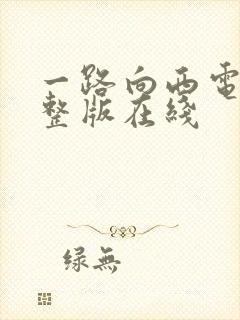 一路向西电
整版在线
绿無